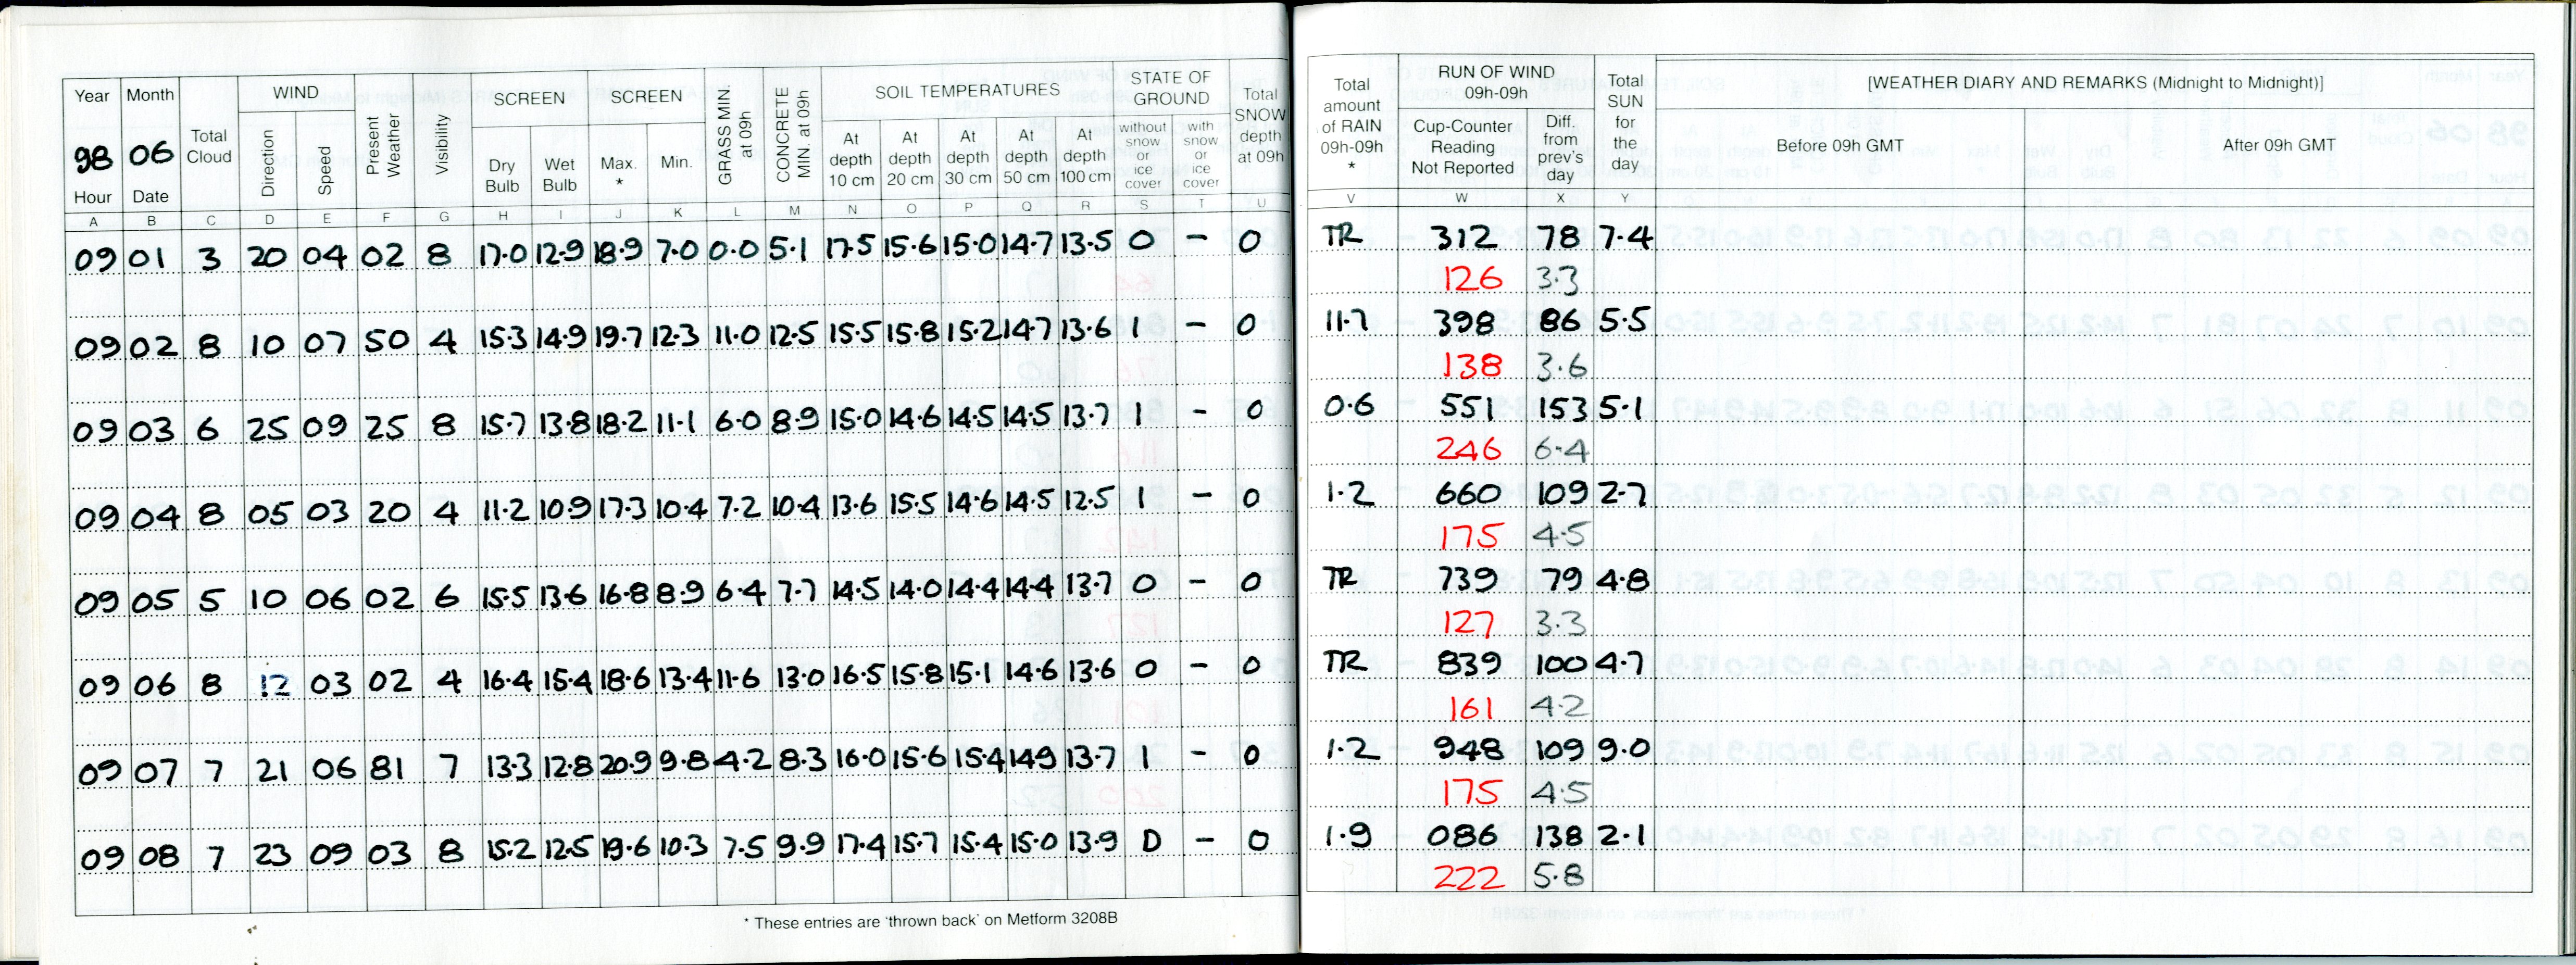 Year Month Total Cloud WIND Present Weather Visibility SCREEN SCREEN GRASS MIN. at 09h CONCRETE MIN. at 09h SOIL TEMPERATURES STATE OF GROUND Total SNOW depth at 09h
98 06 Direction Speed Dry Bulb Wet Bulb Max. * Min. At depth 10 cm At depth 20 cm At depth 30 cm At depth 50 cm At depth 100 cm without snow or ice cover with snow or ice cover
Hour Date
A B C D E F G H I J K L M N O P Q R S T U
09 01 3 20 04 02 8 17.0 12.9 18.9 7.0 0.0 5.1 17.5 15.6 15.0 14.7 13.5 0 - 0
09 02 8 10 07 50 4 15.3 14.9 19.7 12.3 11.0 12.5 15.5 15.8 15.2 14.7 13.6 1 - 0
09 03 6 25 09 25 8 15.7 13.8 18.2 11.1 6.0 8.9 15.0 14.6 14.5 14.5 13.7 1 - 0
09 04 8 05 03 20 4 11.2 10.9 17.3 10.4 7.2 10.4 13.6 15.5 14.6 14.5 12.5 1 - 0
09 05 5 10 06 02 6 15.5 13.6 16.8 8.9 6.4 7.7 14.5 14.0 14.4 14.4 13.7 0 - 0
09 06 8 12 03 02 4 16.4 15.4 18.6 13.4 11.6 13.0 16.5 15.8 15.1 14.6 13.6 0 - 0
09 07 7 21 06 81 7 13.3 12.8 20.9 9.8 4.2 8.3 16.0 15.6 15.4 14.9 13.7 1 - 0
09 08 7 23 09 03 8 15.2 12.5 19.6 10.3 7.5 9.9 17.4 15.7 15.4 15.0 13.9 D - 0
* These entries are 'thrown back' on Metform 3208B
Total amount of RAIN 09h-09h * RUN OF WIND 09h-09h Total SUN for the day [WEATHER DIARY AND REMARKS (Midnight to Midnight)]
Cup-Counter Reading Not Reported Diff. from prev's day Before 09h GMT After 09h GMT
V W X Y
TR 312 78 7.4
126 3.3
11.7 398 86 5.5
138 3.6
0.6 551 153 5.1
246 6.4
1.2 660 109 2.7
175 4.5
TR 739 79 4.8
127 3.3
TR 839 100 4.7
161 4.2
1.2 948 109 9.0
175 4.5
1.9 086 138 2.1
222 5.8